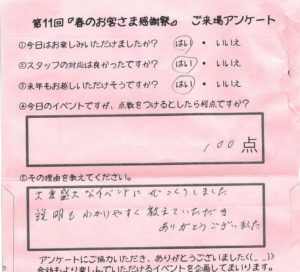 第11回『春のお客さま感謝祭』 ご来場アンケート
①今日はお楽しみいただけましたか? はい ・ いいえ
②スタッフの対応は良かったですか? はい ・ いいえ
③来年もお越しいただけそうですか? はい ・ いいえ
④今日のイベントですが、点数をつけるとしたら何点ですか?
100 点
⑤その理由を教えてください。
大変盛大なイベントにびっくりしました
説明もわかりやすく教えていただき
ありがとうございました
アンケートにご協力いただき、ありがとうございました((_ _))
今後もより楽しんでいただけるイベントを企画してまいります。